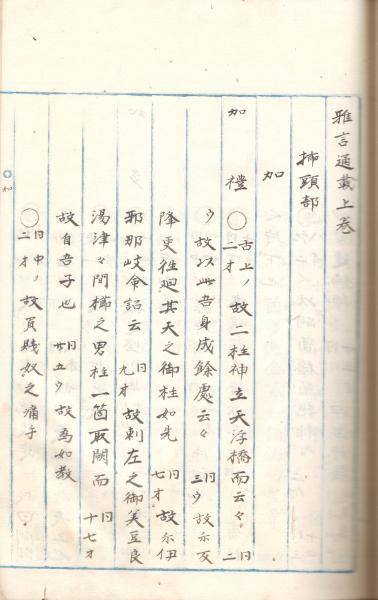 雅言通載上巻
挿頭部
加
加
禮 ○古上ノ二オ 故二柱神立天浮橋而云々 仝二
ウ 故以此吾身成餘處云々 仝三ウ 故尓反
降更徃廻其天之御柱如先 仝七オ 故尓伊
邪那岐命詔云 仝九オ 故刺左之御美豆良
湯津々間櫛之男柱一箇取闕而 仝十七オ
故自吾子也 仝廿五ウ 故為如教
○仝中ノ二オ 故負賤奴之痛手
加